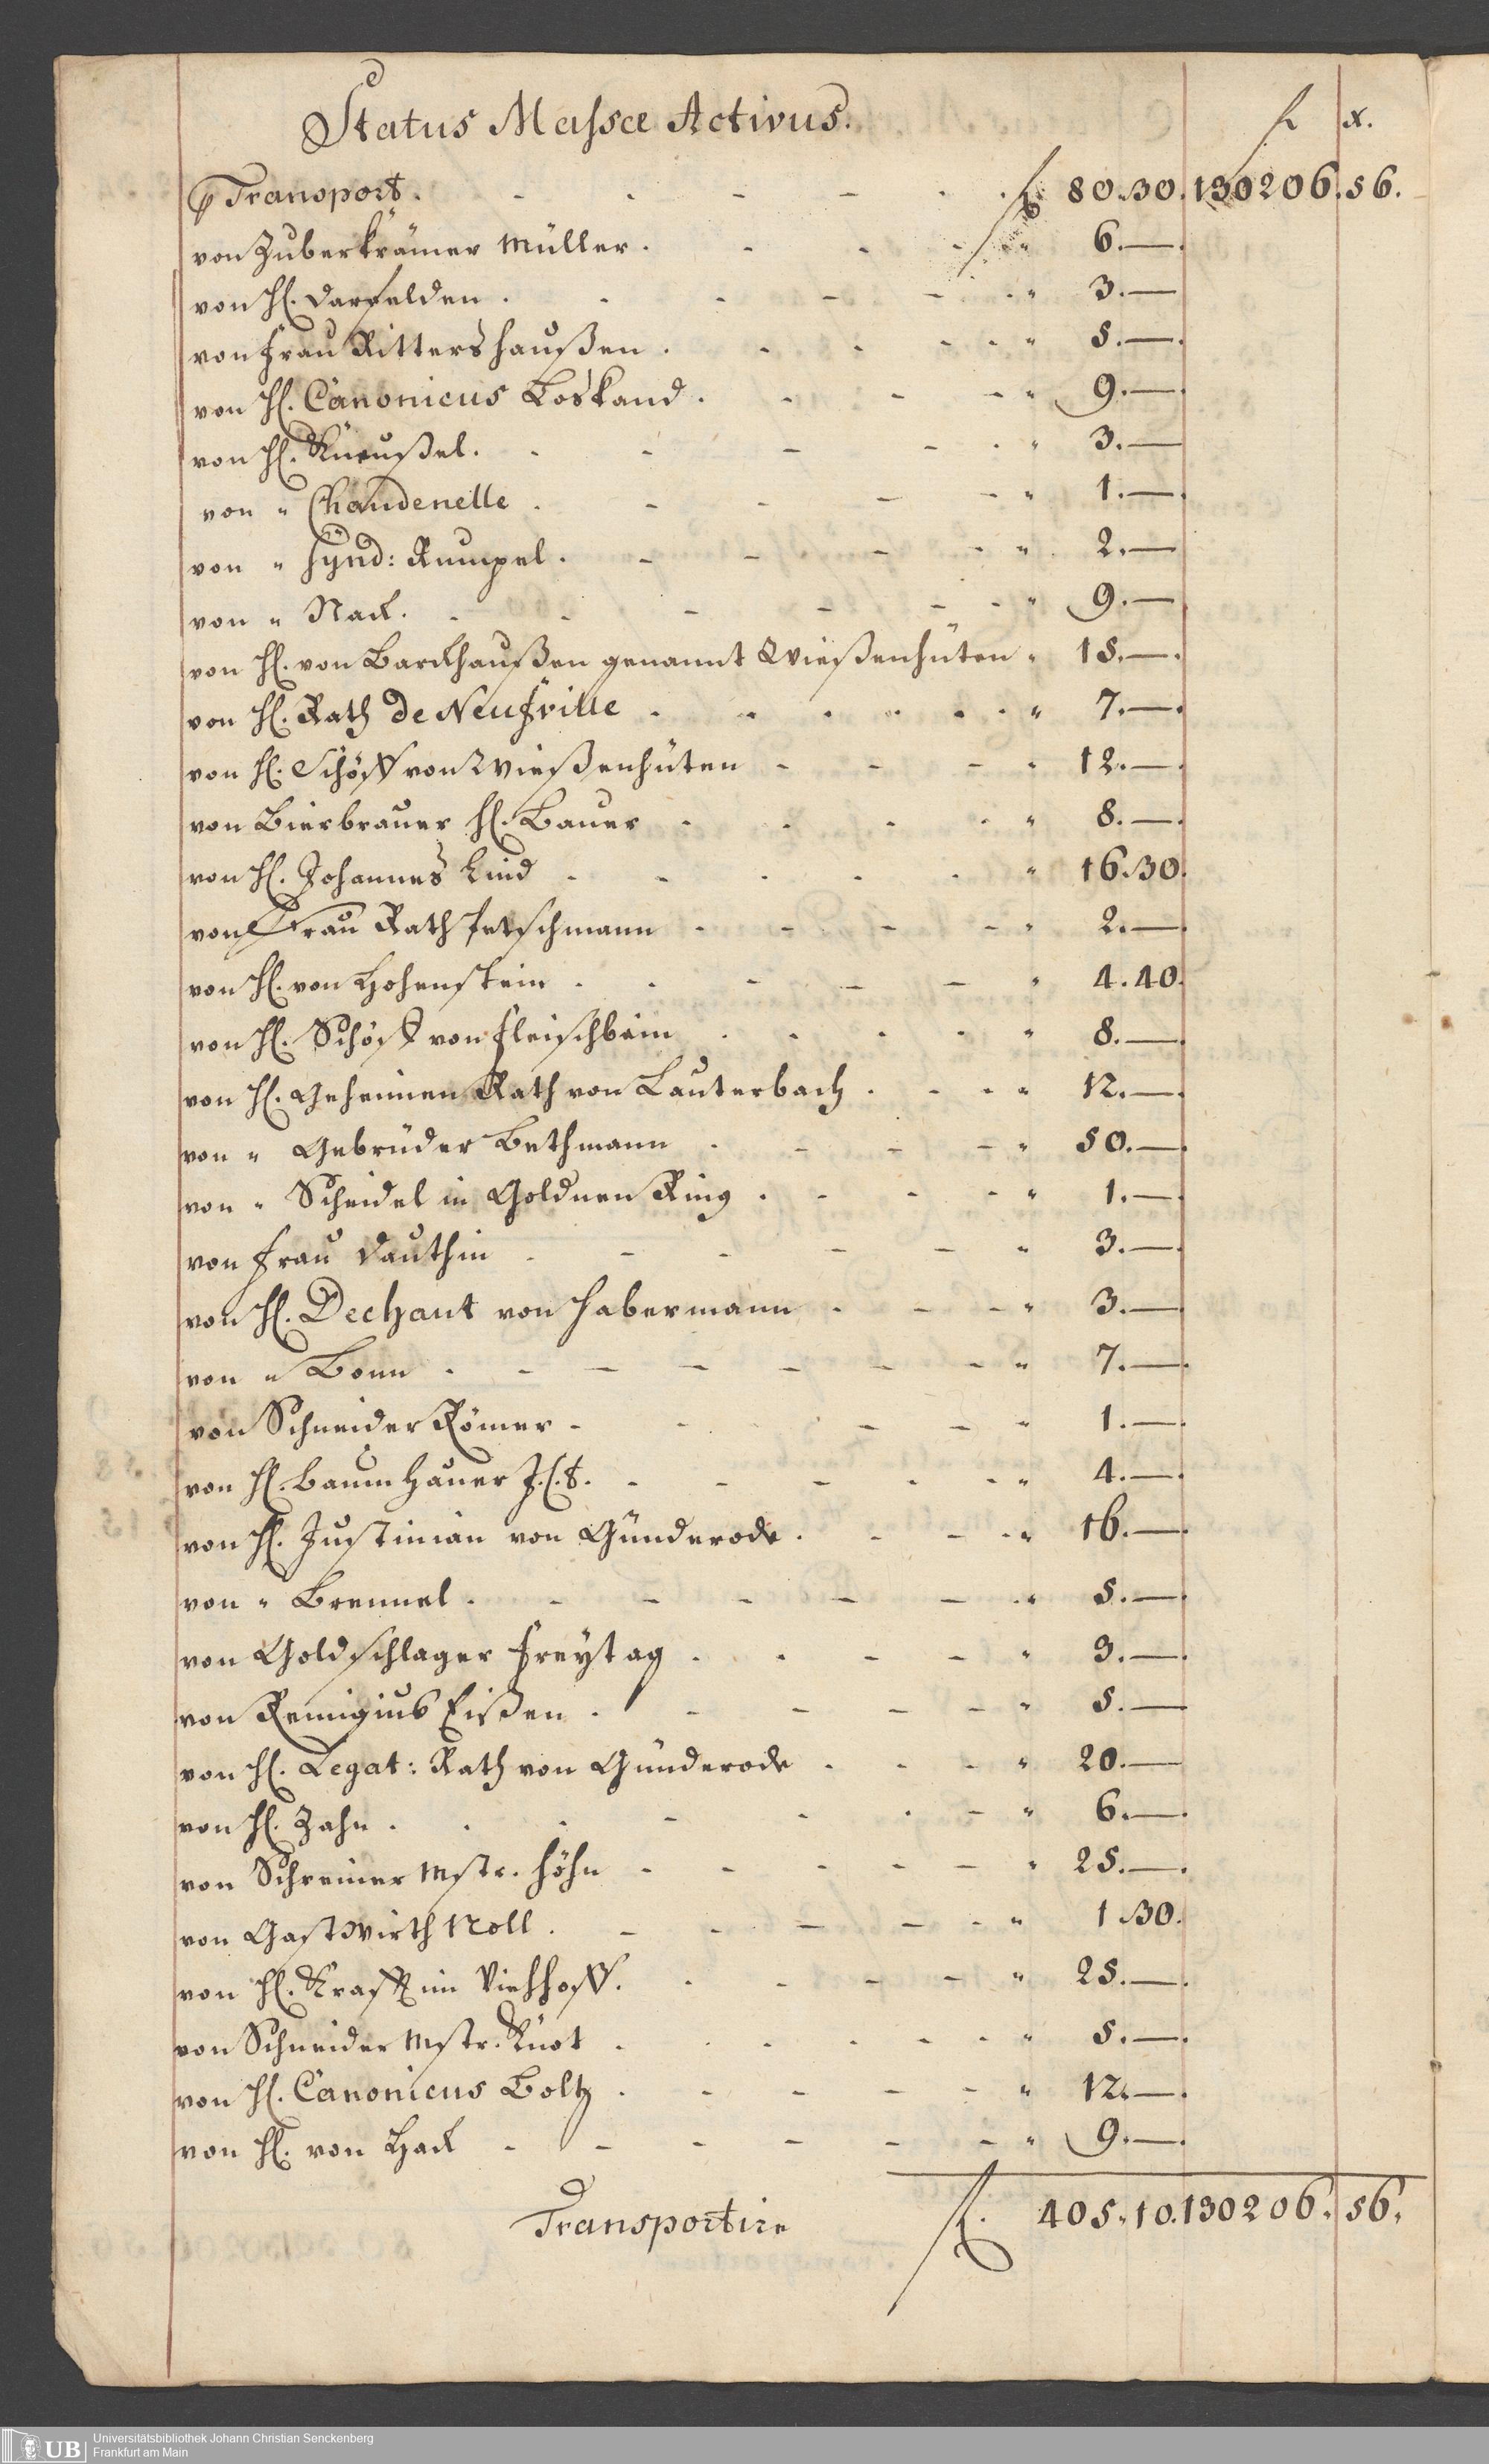 Status Massæ Activus.
f x.
p Transport. f 80.30. 130206. 56.
von Zuberkrämer Müller. " 6.—.
von H. Darfelden. " 3.—
von Frau Rittershaußen. " 5.—.
von H. Canonicus Boskand. " 9.—.
von H. " 3.—
von " Chaudenelle. " 1.—.
von " Synd: Rumpel. " 2.—
von " Nack. " 9.—
von H. von Barckhaußen genannt Wießenhüten " 15.—.
von H. Rath de Neufville. " 7.—.
von H. Schöff von Wießenhüten " 12.—.
von Bierbrauer H. Bauer " 8.—.
von H. Johannes Lind " 16.30.
von Frau Rath Petschmann " 2.—.
von H. von Hohenstein. " 4.40.
von H. Schöff von Fleischbein " 8.—.
von H. Geheimen Rath von Lauterbach. " 12.—.
von " Gebrüder Bethmann " 50.—.
von " Scheidel in Goldnen Ring. " 1.—.
von Frau Dauthin " 3.—.
von H. Dechant von Habermann " 3.—
von " Bonn. " 7.—.
von Schneider Römer " 1.—.
von H. Baumhauer J.C.t. " 4.—.
von H. Justinian von Günderode. " 16.—.
von " Bremmel. " 5.—.
von Goldschlager Freytag. " 3.—.
von Remigius Eißen. " 5.—
von H. Legat: Rath von Günderode " 20.—
von H. Zahn. " 6.—.
von Schreiner Mstr. Höhn " 25.—.
von Gastwirth Noll. " 1.30.
von H. Krafft im Viehhoff. " 25.—.
von Schneider Mstr. Knot " 5.—.
von H. Canonicus Boltz. " 12.—.
von H. von Hack " 9.—.
Transportire f. 405.10. 130206. 56.
UB Universitätsbibliothek Johann Christian Senckenberg
Frankfurt am Main